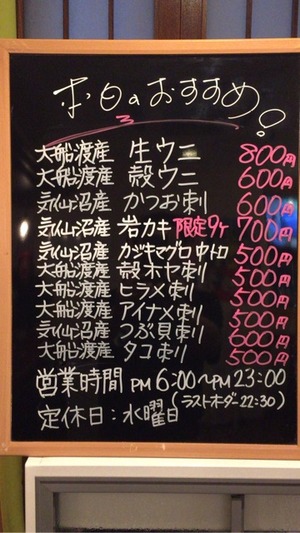 本日のおすすめ
大船渡産 生ウニ 800円
大船渡産 殻ウニ 600円
気仙沼産 かつお刺 600円
気仙沼産 岩カキ 限定9ヶ 700円
気仙沼産 カジキマグロ中トロ 500円
大船渡産 殻ホヤ刺 500円
大船渡産 ヒラメ刺 500円
大船渡産 アイナメ刺 500円
気仙沼産 つぶ貝刺 600円
大船渡産 タコ刺 500円
営業時間 PM 6:00〜PM 23:00
(ラストオーダー22:30)
定休日:水曜日